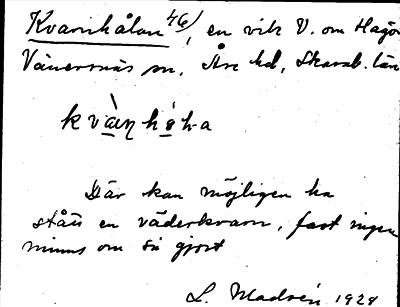 Kvarnhålan 46), en vik V. om Hagön
Vänersnäs sn, Åse hd, Skarab. län
kvàn hó̀ḷa
Där kan möjligen ha
stått en väderkvarn, fast ingen
minns om så gjort
L. Modéen 1928